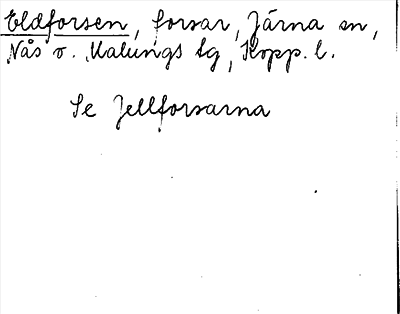 Eldforsen, forsar, Järna sn,
Nås o. Malungs tg, Kopp. l.
Se Jellforsarna